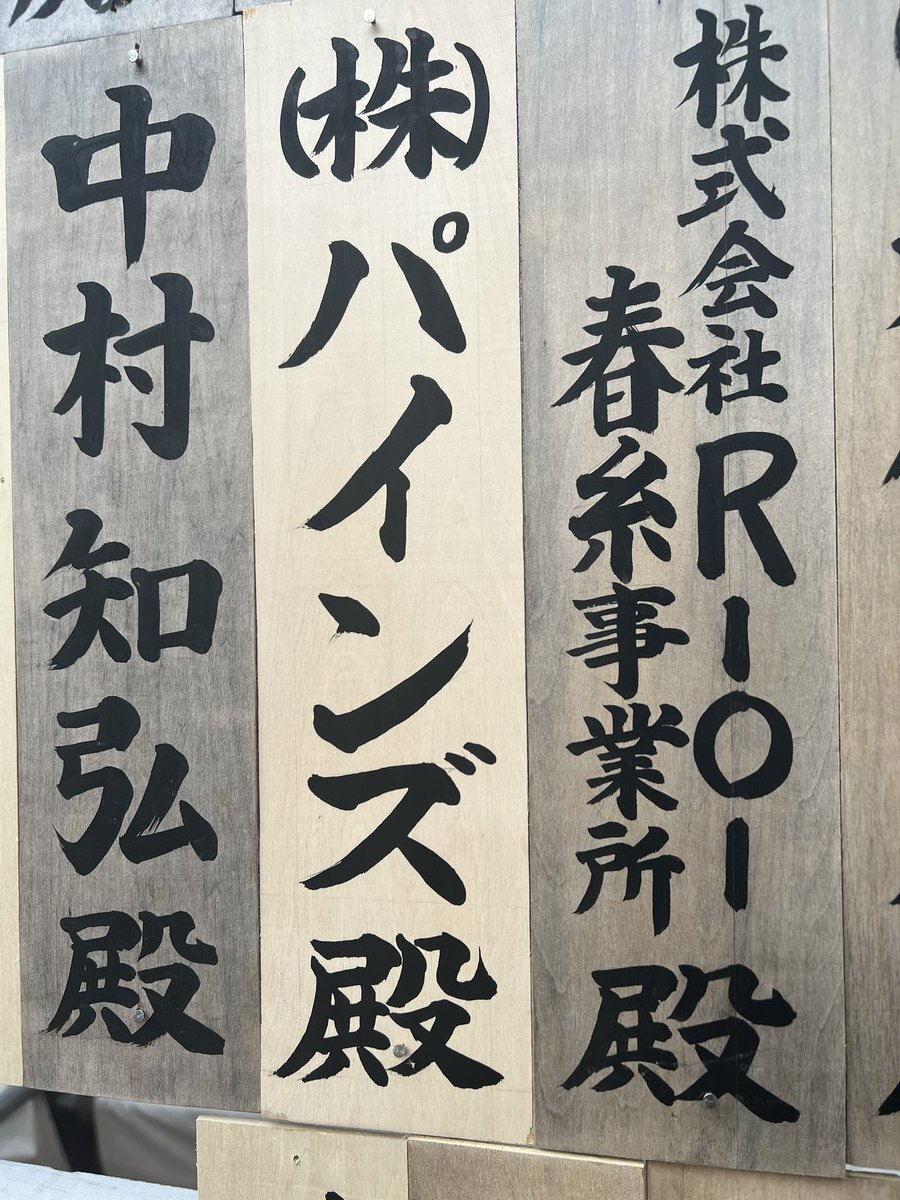 株式会社RIOI
春糸事業所 殿
(株)パインズ殿
中村知弘殿